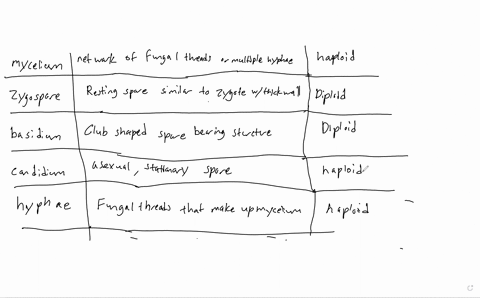 mycelium network of fungal threads or multiple hyphae haploid
Zygospore Resting spore similar to zygote w/thick wall Diploid
basidium Club shaped spore bearing structure Diploid
canidium asexual, stationary spore haploid
hyphae Fungal threads that make up mycelium haploid